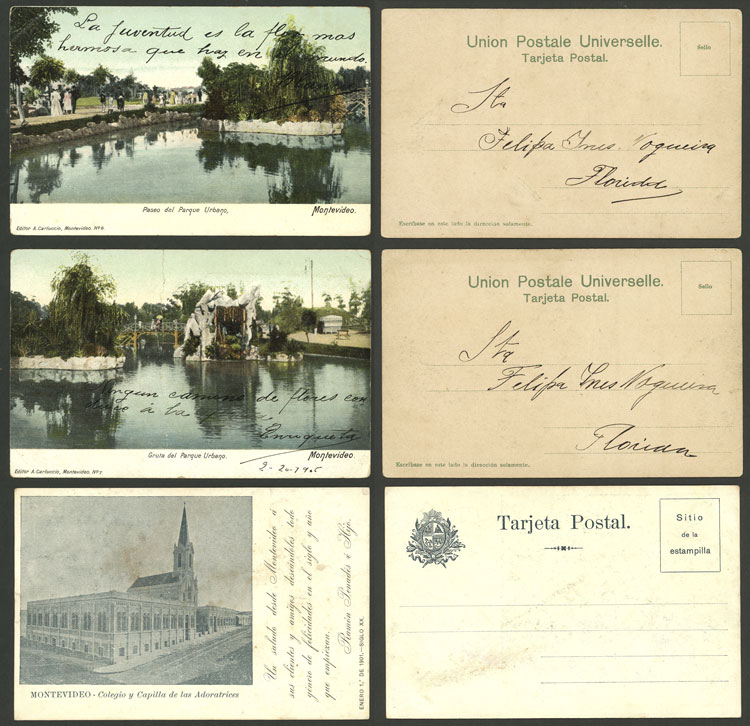 La Juventud es la flor mas
hermosa que haz en mundo.
Paseo del Parque Urbano,
Montevideo.
Editor A. Carluccio, Montevideo. Nº 6.
Union Postale Universelle.
Tarjeta Postal.
Sello
Sta
Felipa Ines Nogueira
Florida
Escríbase en este lado la dirección solamente.
Ningun camino de flores con
á la
Enriqueta
Gruta del Parque Urbano.
Montevideo.
Editor A. Carluccio, Montevideo. Nº 7.
Union Postale Universelle.
Tarjeta Postal.
Sello
Sta
Felipa Ines Nogueira
Florida
Escríbase en este lado la dirección solamente.
MONTEVIDEO - Colegio y Capilla de las Adoratrices
Un saludo desde Montevideo á
sus clientes y amigos deseándoles todo
género de felicidades en el siglo y año
que empiezan.
Ramón é Hijo.
ENERO 1.º DE 1901.—SIGLO XX.
Tarjeta Postal.
Sitio
de la
estampilla